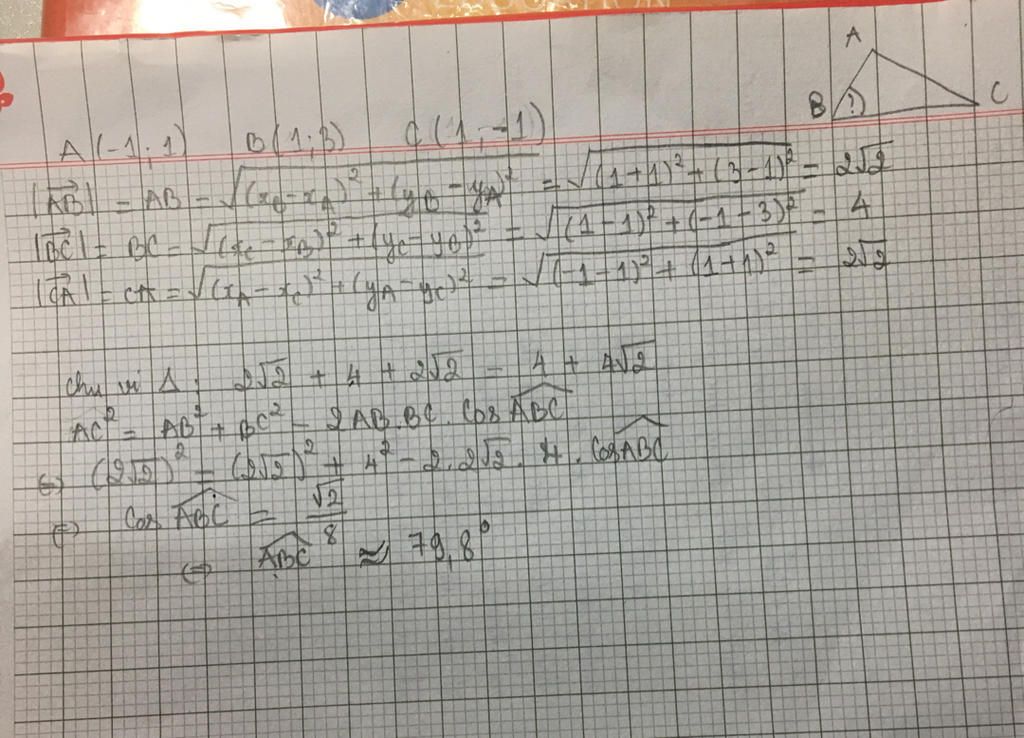 A
B ?) C
A(-1; 1) B(1; 3) C(1; -1)
|AB⃗| = AB = √((x_B - x_A)² + (y_B - y_A)²) = √((1+1)² + (3-1)²) = 2√2
|BC⃗| = BC = √((x_C - x_B)² + (y_C - y_B)²) = √((1-1)² + (-1-3)²) = 4
|CA⃗| = CA = √((x_A - x_C)² + (y_A - y_C)²) = √((-1-1)² + (1+1)²) = 2√2
Chu vi Δ: 2√2 + 4 + 2√2 = 4 + 4√2
AC² = AB² + BC² - 2AB.BC.Cos ABĈ
⇔ (2√2)² = (2√2)² + 4² - 2.2√2.4.Cos ABĈ
⇔ Cos ABĈ = √2/8
⇔ ABĈ ≈ 79,8°